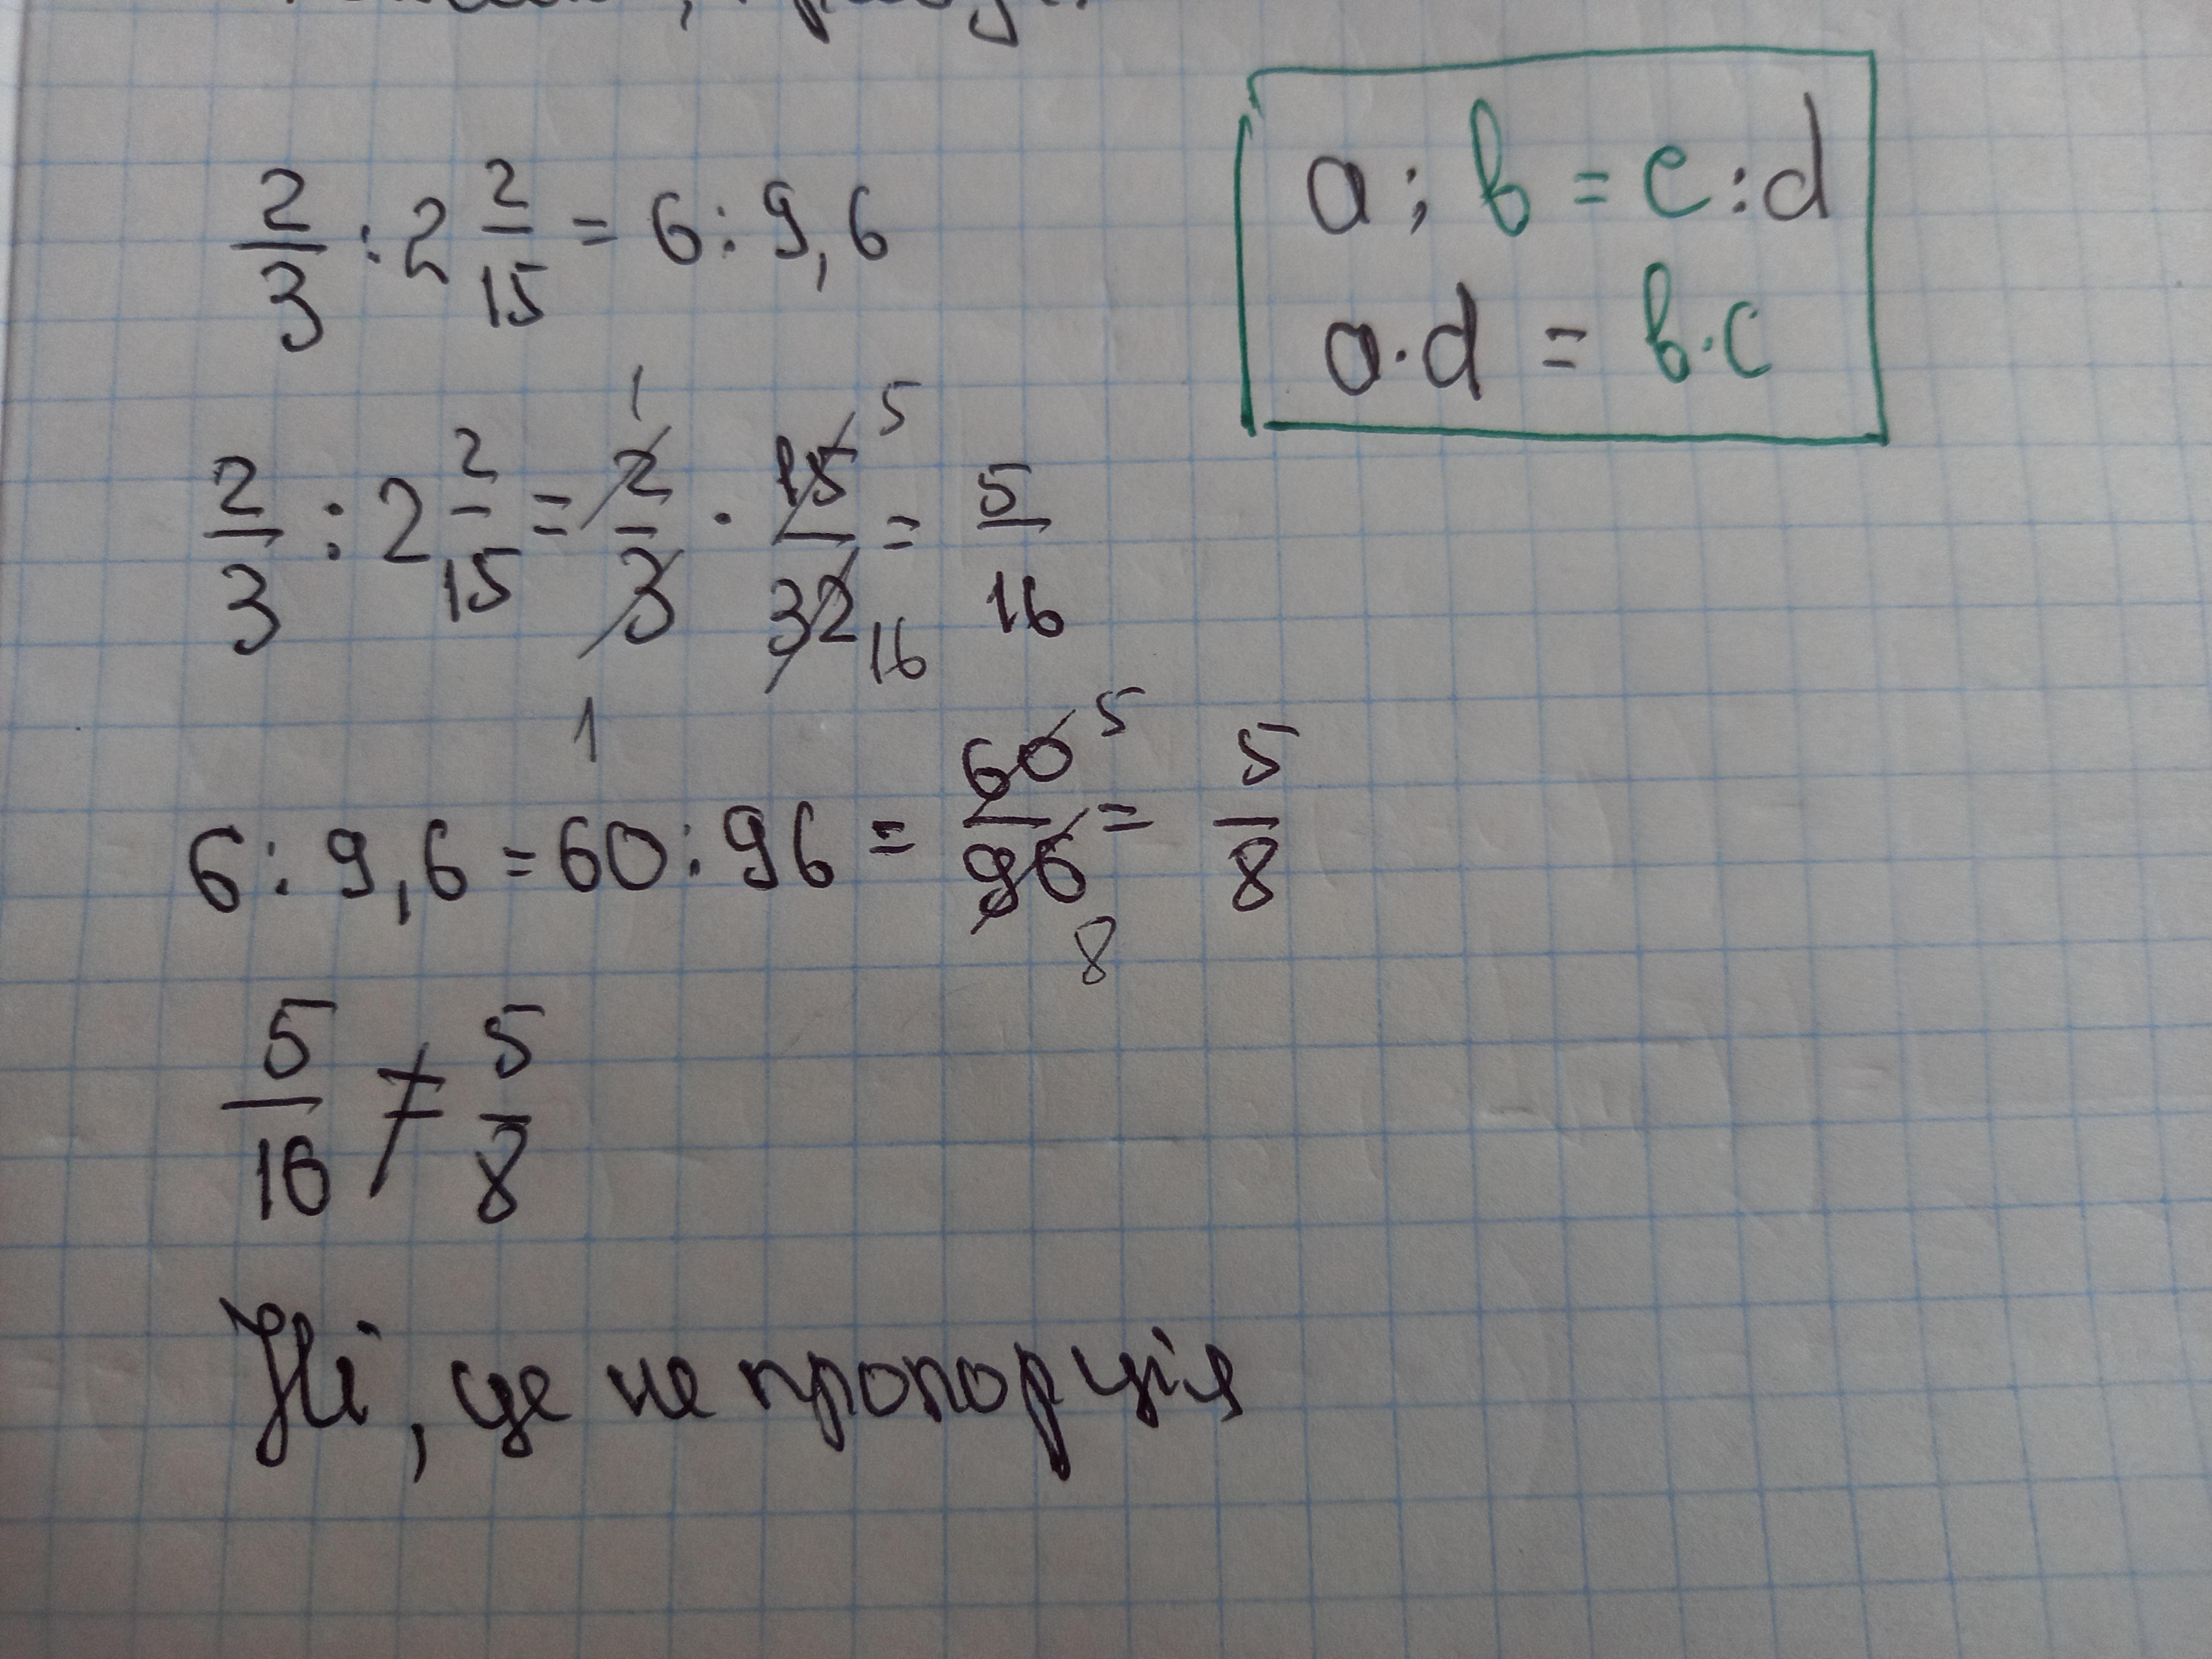 2/3 : 2 2/15 = 6 : 9,6
a ; в = c : d
a · d = в · c
2/3 : 2 2/15 = 2/3 · 15/32 = 5/16
1 5
1 16
6 : 9,6 = 60 : 96 = 60/96 = 5/8
5
8
5/16 ≠ 5/8
Ні, це не пропорція